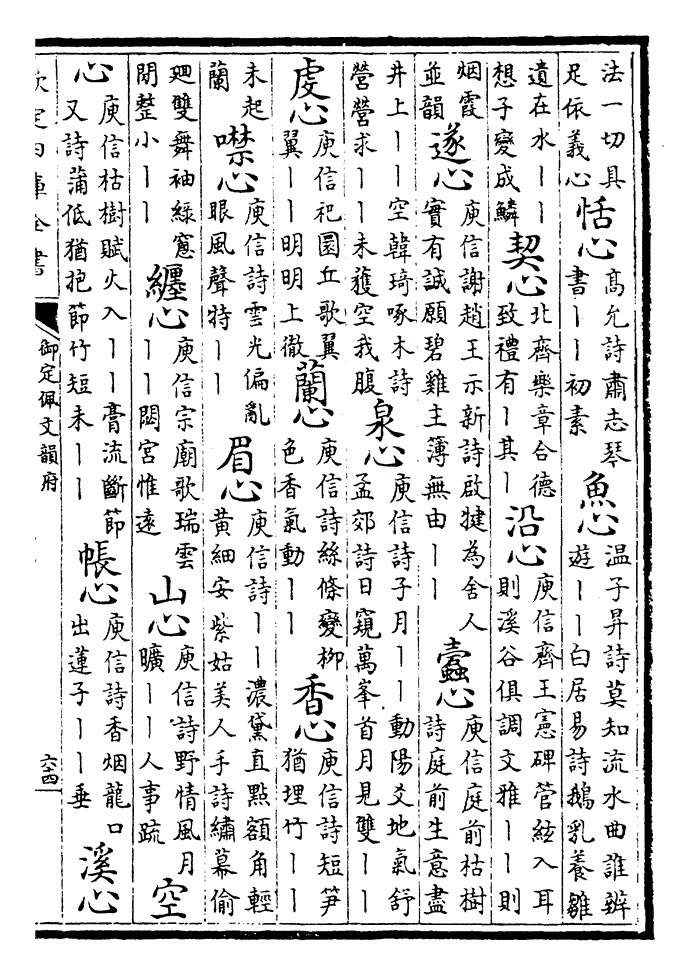 法一切具足依義心恬心高允詩肅志琴書丨丨初素魚心温子昇詩莫知流水曲誰辨遊丨丨白居易詩鵝乳養雛
遺在水丨丨想子變成鱗契心北齊樂章合德致禮有丨其丨沿心庾信齊王憲碑管絃入耳則溪谷俱調文雅丨丨則
烟霞並韻遂心庾信謝趙王示新詩啟犍為舍人實有誠願碧雞主簿無由丨丨蠹心庾信庭前枯樹詩庭前生意盡
井上丨丨空韓琦啄木詩營營求丨丨未獲空我腹泉心庾信詩子月丨丨動陽爻地氣舒孟郊詩日窺萬峯首月見雙丨丨
虔心庾信祀圜丘歌翼翼丨丨明明上徹蘭心庾信詩絲條變柳色香氣動丨丨香心庾信詩短笋猶埋竹丨丨
未起蘭噤心庾信詩雲光偏亂眼風聲特丨丨眉心庾信詩丨丨濃黛直點額角輕黃細安紫姑美人手詩繡幕偷
廻雙舞袖綠窻閒整小丨丨纏心庾信宗廟歌瑞雲丨丨閟宮惟遠山心庾信詩野情風月曠丨丨人事疏空
心庾信枯樹賦火入丨丨膏流斷節又詩蒲低猶抱節竹短未丨丨帳心庾信詩香烟龍口出蓮子丨丨垂溪心
欽定四庫全書
御定佩文韻府
六十四